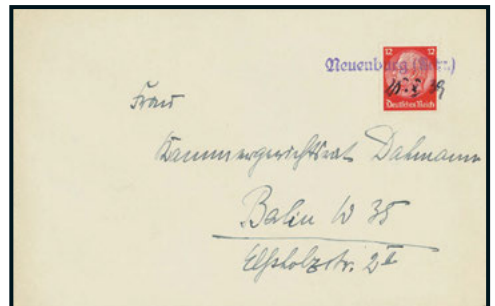 Neuenburg (Wpr.)
12 12
Deutsches Reich
Frau
Kammergerichtsrat Dalmann
Berlin W 35
Elßholzstr.